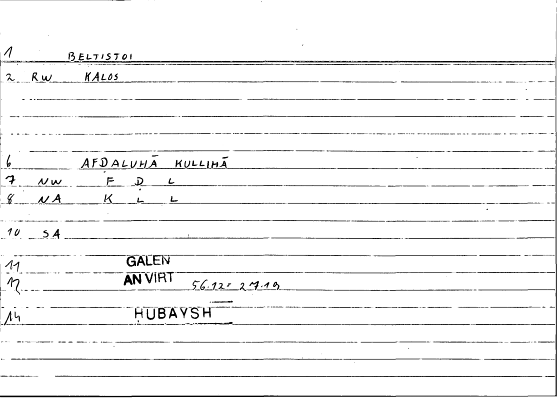 1 BELTISTOI
2 RW KALOS
6 AFDALUHĀ KULLIHĀ
7 NW F Ḍ L
8 NA K L L
10 SA
11 GALEN
12 AN VIRT 56.12: 27.19
14 HUBAYSH